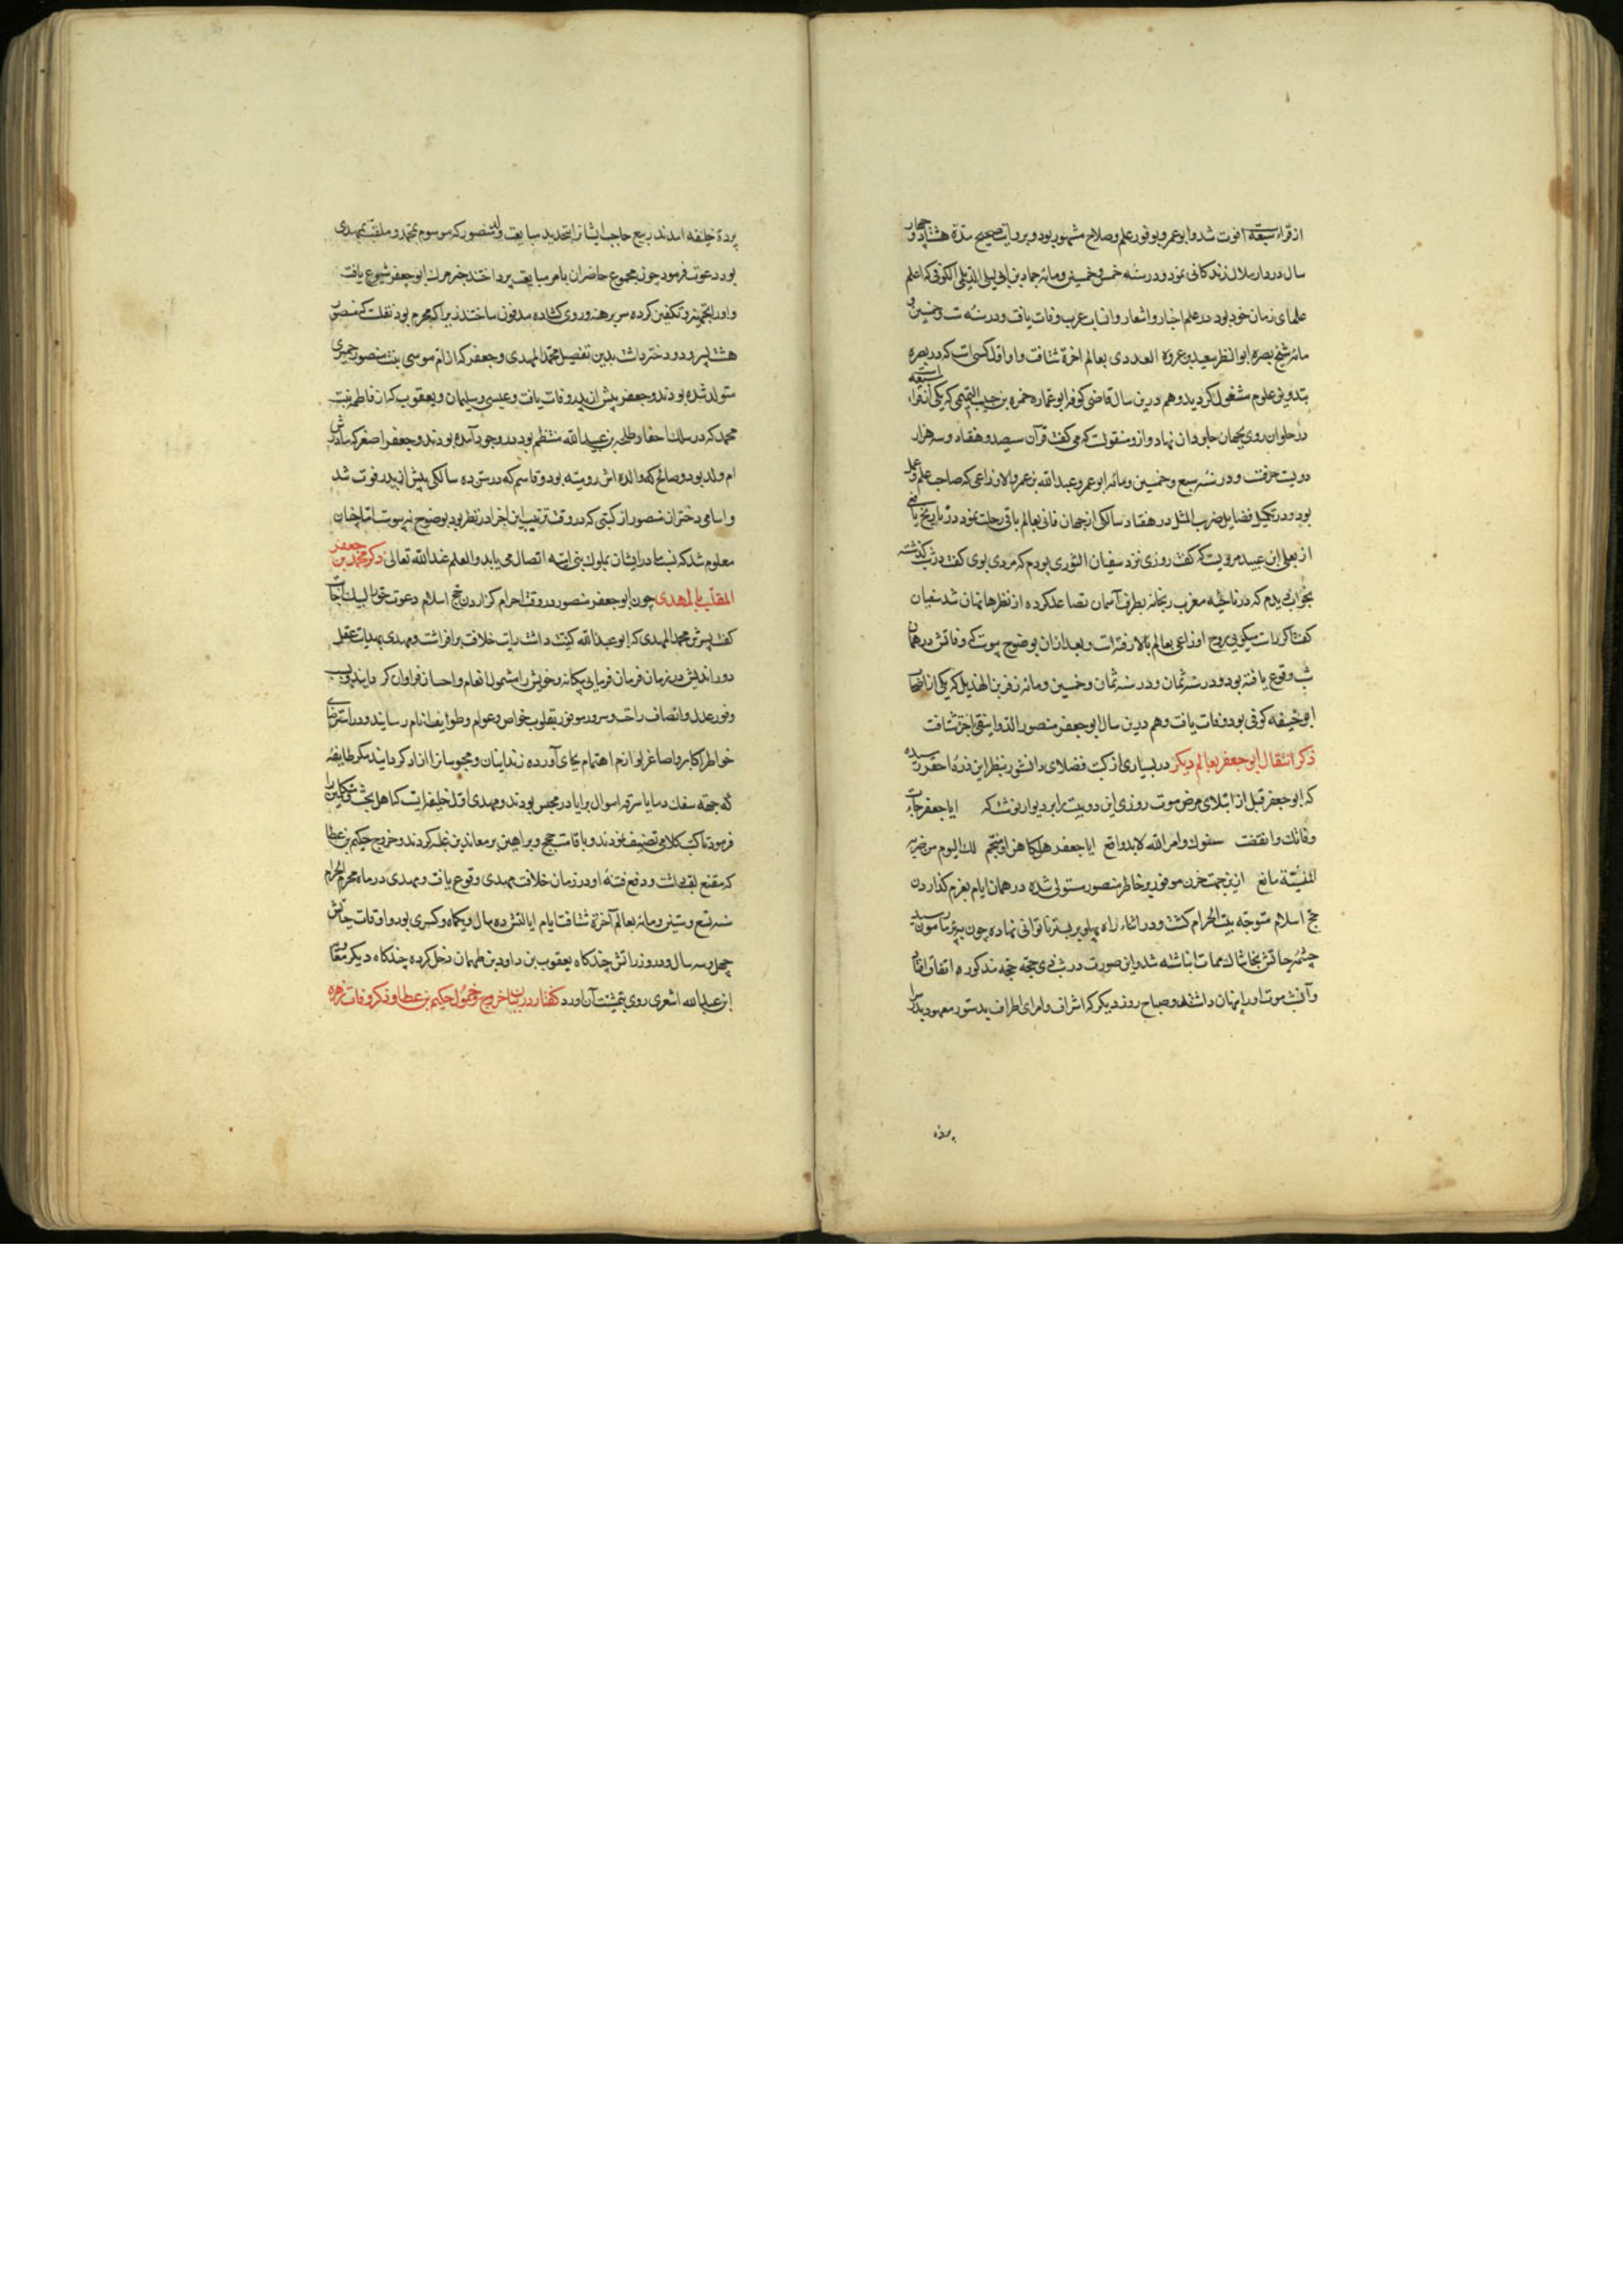 از قراء سبعه فوت شد و ابو عمرو بوفور علم و صلاح مشهور بود و بروایت صحیح مدة هشتاد و چهار
سال در دار ملال زندکانی نمود و در سنه خمس و خمسین و مائه حماد بن ابی لیلی الدیلمی الکوفی که اعلم
علمای زمان خود بود در علم اخبار و اشعار و انساب عرب وفات یافت و در سنه ست و خمسین و
مائه شیخ بصره ابو النظر سعید بن عروة العددی بعالم اخرة شتافت و او اول کسی است که در بصره
بتدوین علوم مشغول کردید و هم درین سال قاضی کوفه ابو عماره حمزه بن حبیب التیمی که یکی از قراء سبعه است
در حلوان روی بجهان جاودان نهاد و ازو منقولست که می کفت قرآن سیصد و هفتاد و سه هزار
دویست حرفست و در سنه سبع و خمسین و مائه ابو عمرو عبد الله بن عمرو الاوزاعی که صاحب علم و عمل
بود و در تکمیل فضایل ضرب المثل در هفتاد سالکی از جهان فانی بعالم باقی رحلت نمود در تاریخ یافعی
از یعلی ابن عبید مرویست که کفت روزی نزد سفیان الثوری بودم که مردی بوی کفت دوشب کذشته
بخواب دیدم که در ناحیه مغرب ریحانه بطرف آسمان تصاعد کرده از نظرها نهان شد سفیان
کفت اکر راست میکویی روح اوزاعی بعالم بالا رفته است و بعد ازان بوضوح پیوست که وفاتش در همان
شب وقوع یافته بود و در سنه ثمان و در سنه ثمان و خمسین و مائه زفر بن الهذیل که یکی از اصحاب
ابو حنیفه کوفی بود وفات یافت و هم درین سال ابو جعفر منصور الدوانیقی بآخرت شتافت
ذکر انتقال ابو جعفر بعالم دیکر در بسیاری از کتب فضلای دانشور بنظر این ذره احقر رسیده
که ابو جعفر قبل از ابتلای مرض موت روزی این دو بیت را بر دیوار نوشت که ابا جعفر حانت
وفاتک وانقضت سنوک وامر الله لابد واقع ابا جعفر هل کاهن او منجم لک الیوم من ضربه
المنیّة مانع ازین جهت حزن موفور بر خاطر منصور مستولی شده در همان ایام بعزم کذاردن
حج اسلام متوجه بیت الحرام کشت و در اثناء راه پهلو بر بستر ناتوانی نهاده چون ببئر مأمون رسید
چشمه حیاتش بخاشاک ممات انباشته شد و این صورت در شب ذی حجه حجه مذکوره اتفاق افتاد
و آنشب موت او را پنهان داشتند و صباح روز دیکر که اشراف و امرای اطراف بدستور معهود بدر سرا
پرده
پردهٔ خلیفه امدند ربیع حاجب ایشان را بتجدید بیعت ولد منصور که موسوم بمحمد و ملقب بمهدی
بود دعوت فرمود چون مجموع حاضران بامر مبایعت پرداختند خبر مرک ابو جعفر شیوع یافت
و او را تجهیز و تکفین کرده سر برهنه و روی کشاده مدفون ساختند زیرا که محرم بود نقلست که منصور
هشت پسر و دو دختر داشت بدین تفصیل محمد المهدی و جعفر که از ام موسی بنت منصور حمیری
متولد شده بودند و جعفر پیش از پدر وفات یافت و عیسی و سلیمان و یعقوب که از فاطمه بنت
محمد که در سلک احفاد طلحه بن عبید الله منتظم بود در وجود آمده بودند و جعفر اصغر که مادرش
ام ولد بود و صالح که والده اش رومیه بود و قاسم که در سن ده سالکی پیش از پدر فوت شد
و اسامی دختران منصور از کتبی که در وقت ترتیب این اجزا در نظر بود بوضوح نپیوست اما چنان
معلوم شد که نسب مادر ایشان بملوک بنی امیه اتصال می یابد والعلم عند الله تعالی ذکر محمد بن جعفر
الملقب بالمهدی چون ابو جعفر منصور در وقت احرام کزاردن حج اسلام دعوت حق را لبیک اجابت
کفت پسرش محمد المهدی که ابو عبد الله کنیت داشت رایت خلافت برافراشت و مهدی بهدایت عقل
دوراندیش در زمان فرمان فرمایی بیکانه و خویش را مشمول انعام و احسان فراوان کردانید و بسبب
وفور عدل و انصاف راحت و سرور موفور بقلوب خواص و عوام و طوایف انام رسانید و در استرضای
خواطر اکابر و اصاغر لوازم اهتمام بجای آورده زندانیان و محبوسانرا ازاد کردانید مکر طایفه
که جهته سفک دما یا سرقه اموال برایا در محبس بودند و مهدی اول خلیفه ایست که اهل بحث و متکلمین را
فرمود تا کتب کلامی تصنیف نمودند و باقامت حجج و براهین بر معاندین غلبه کردند و خروج حکیم بن عطا
که مقنع لقب داشت و دفع فتنهٔ او در زمان خلافت مهدی وقوع یافت و مهدی در ماه محرم الحرام
سنه تسع و ستین و مائه بعالم آخرة شتافت ایام ایالتش ده سال و یکماه و کسری بود و اوقات حیاتش
چهل و سه سال و در وزراتش چندکاه یعقوب بن داود بن طهمان دخل کرده چندکاه دیکر
ابن عبد الله اشعری روی بتمشیت آن اورد کفتار در بیان خروج و خمول حکیم بن عطا و ذکر وفات زمره